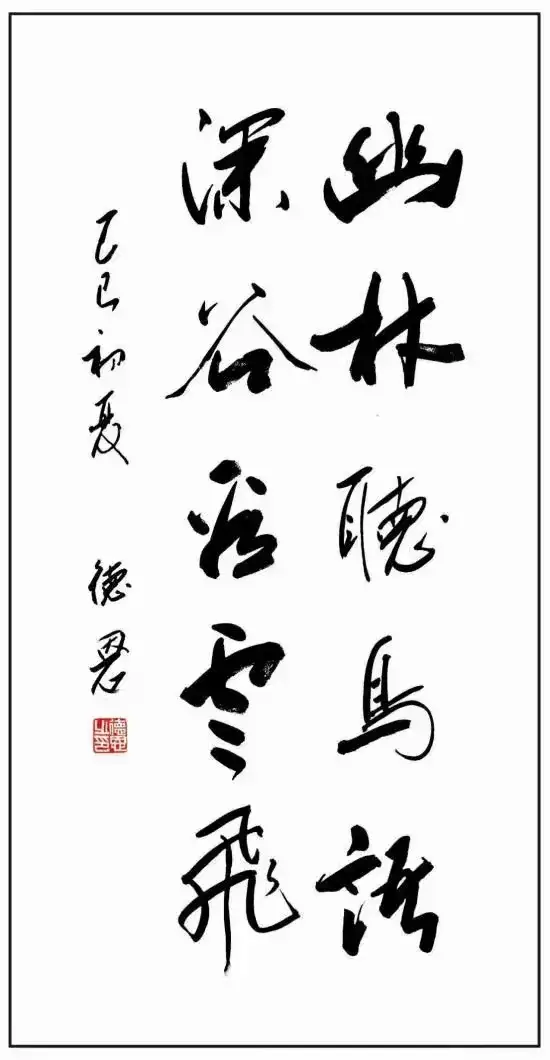 幽林聽鳥語
深谷看雲飛
乙巳初夏 德恩